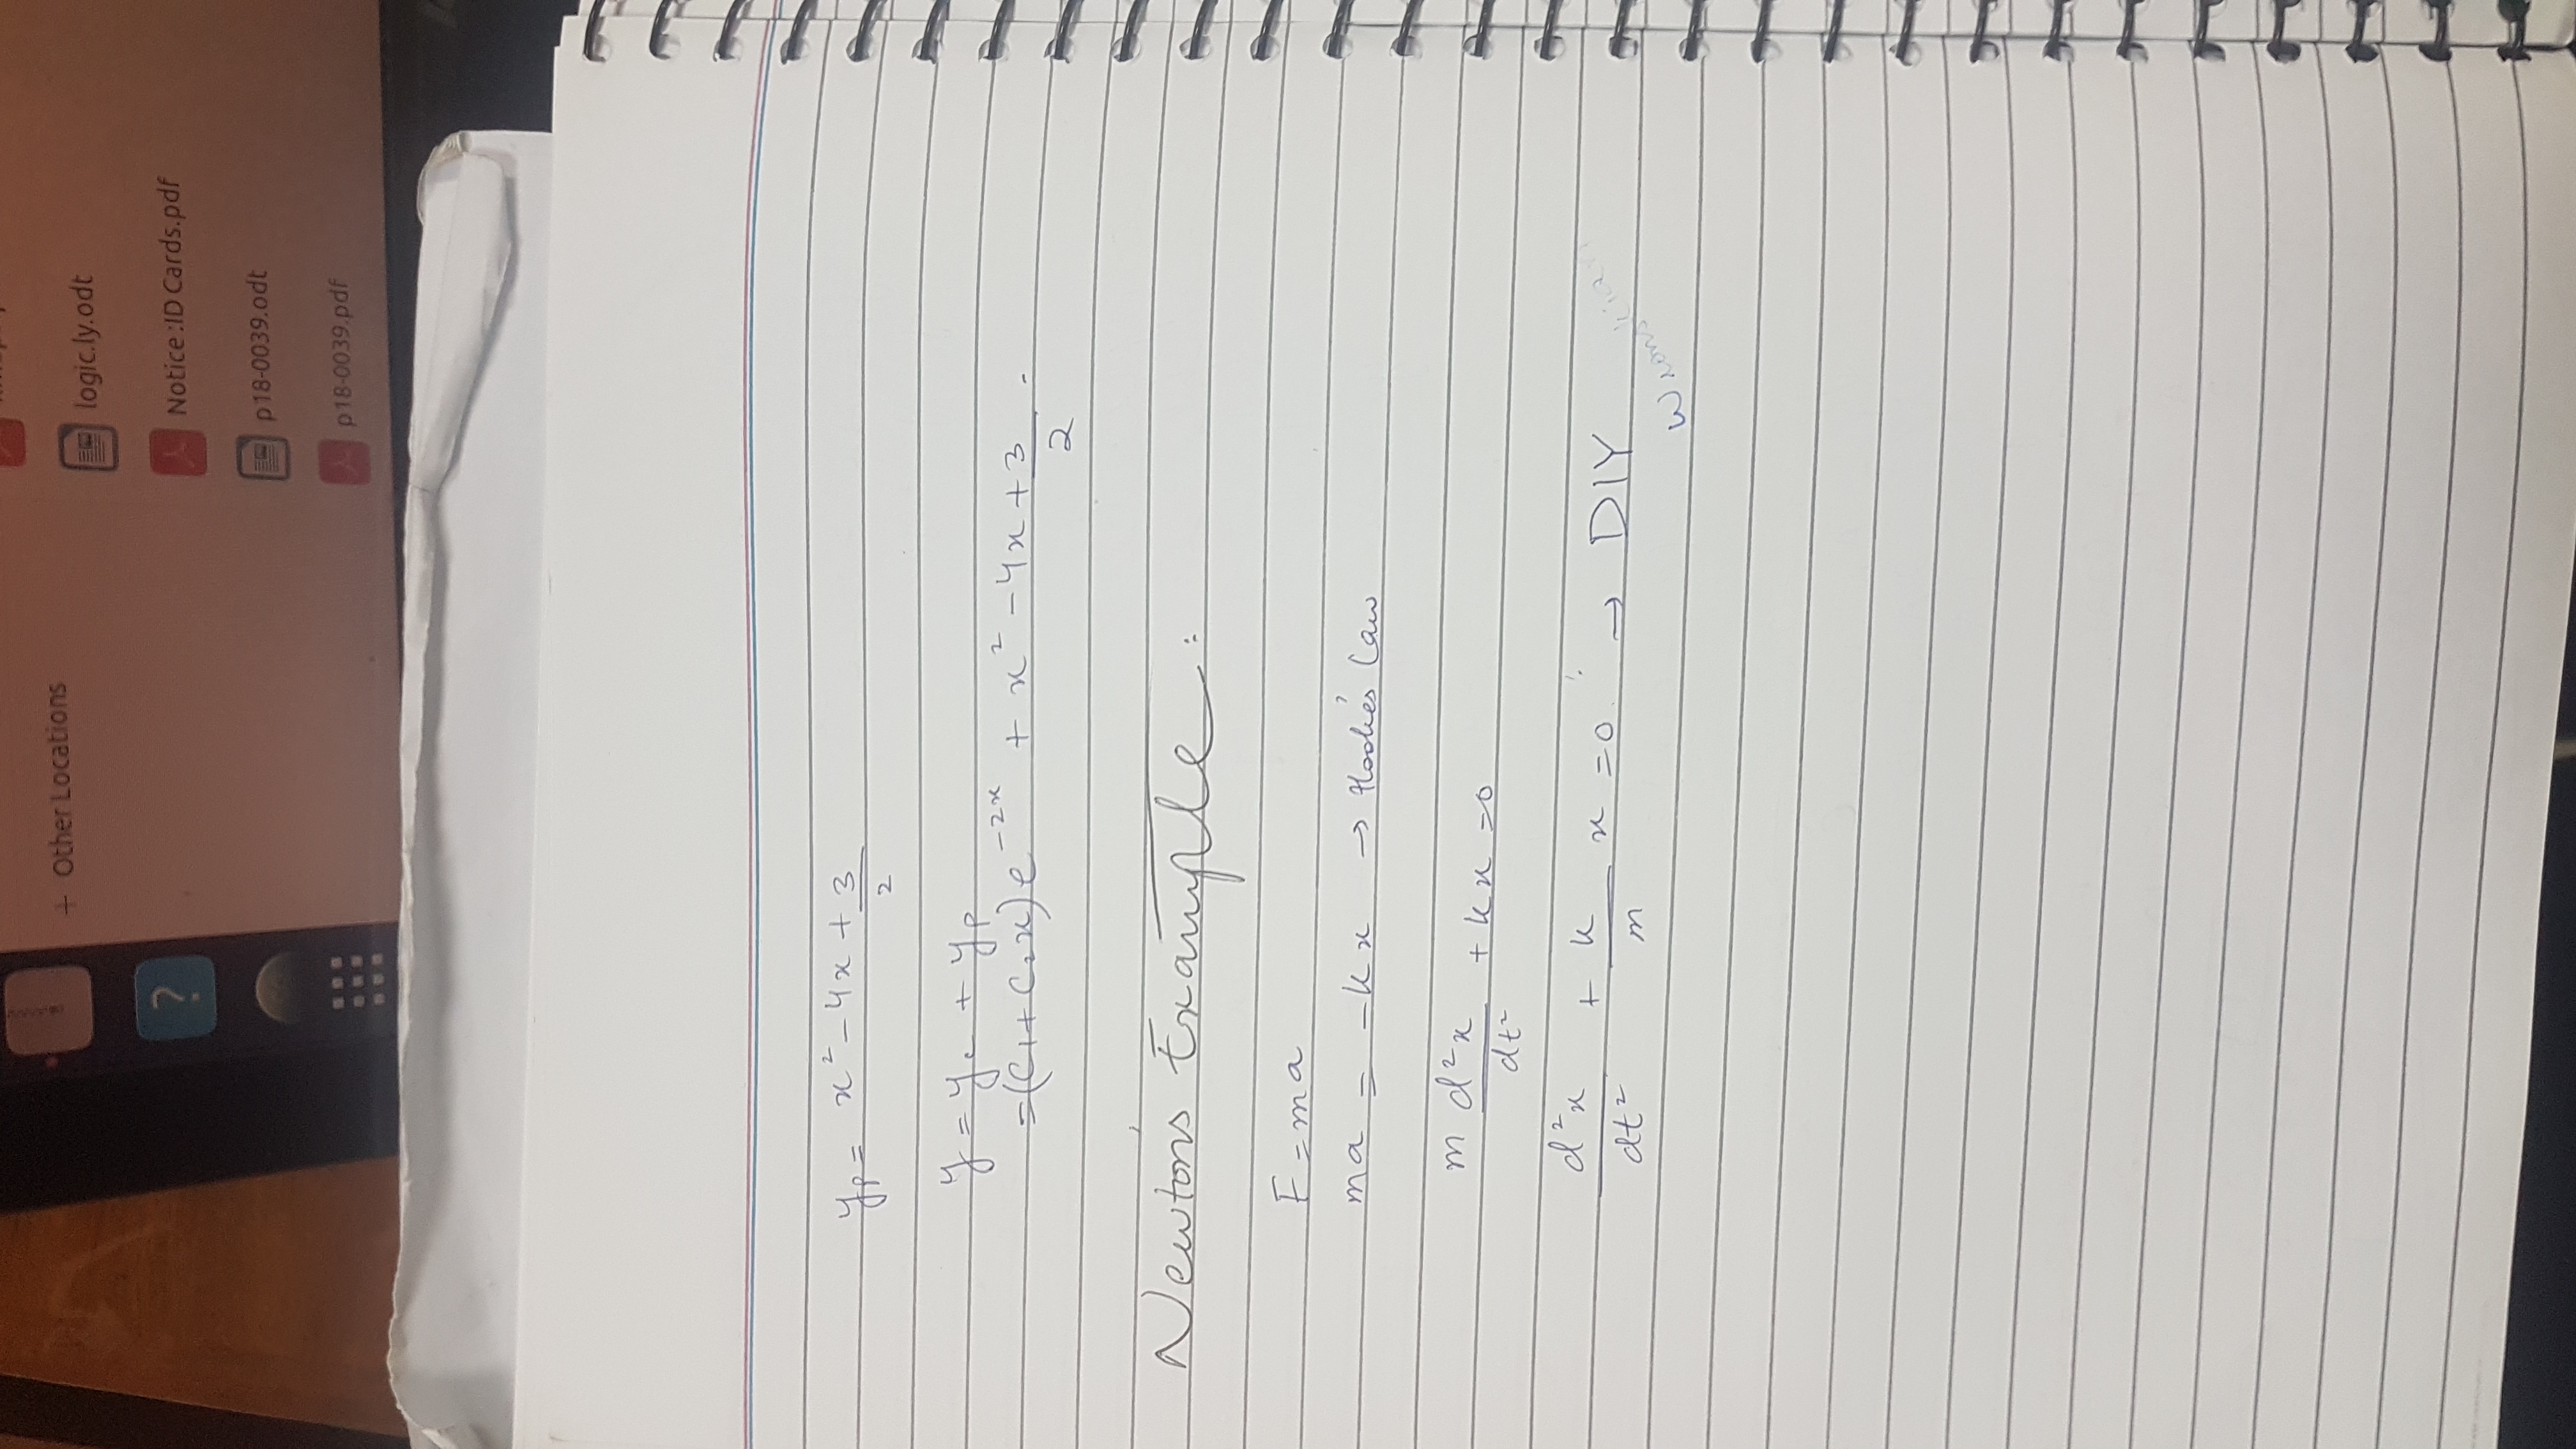 + Other Locations
logic.ly.odt
Notice :ID Cards.pdf
p18-0039.odt
p18-0039.pdf
yp = x² - 4x + 3/2
y = yc + yp
= (C1 + C2x) e^-2x + x² - 4x + 3/2 .
Newton's Example :
F = ma
ma = -kx → Hooke's Law
m d²x/dt² + kx = 0
d²x/dt² + k/m x = 0. → DIY
Wronskian